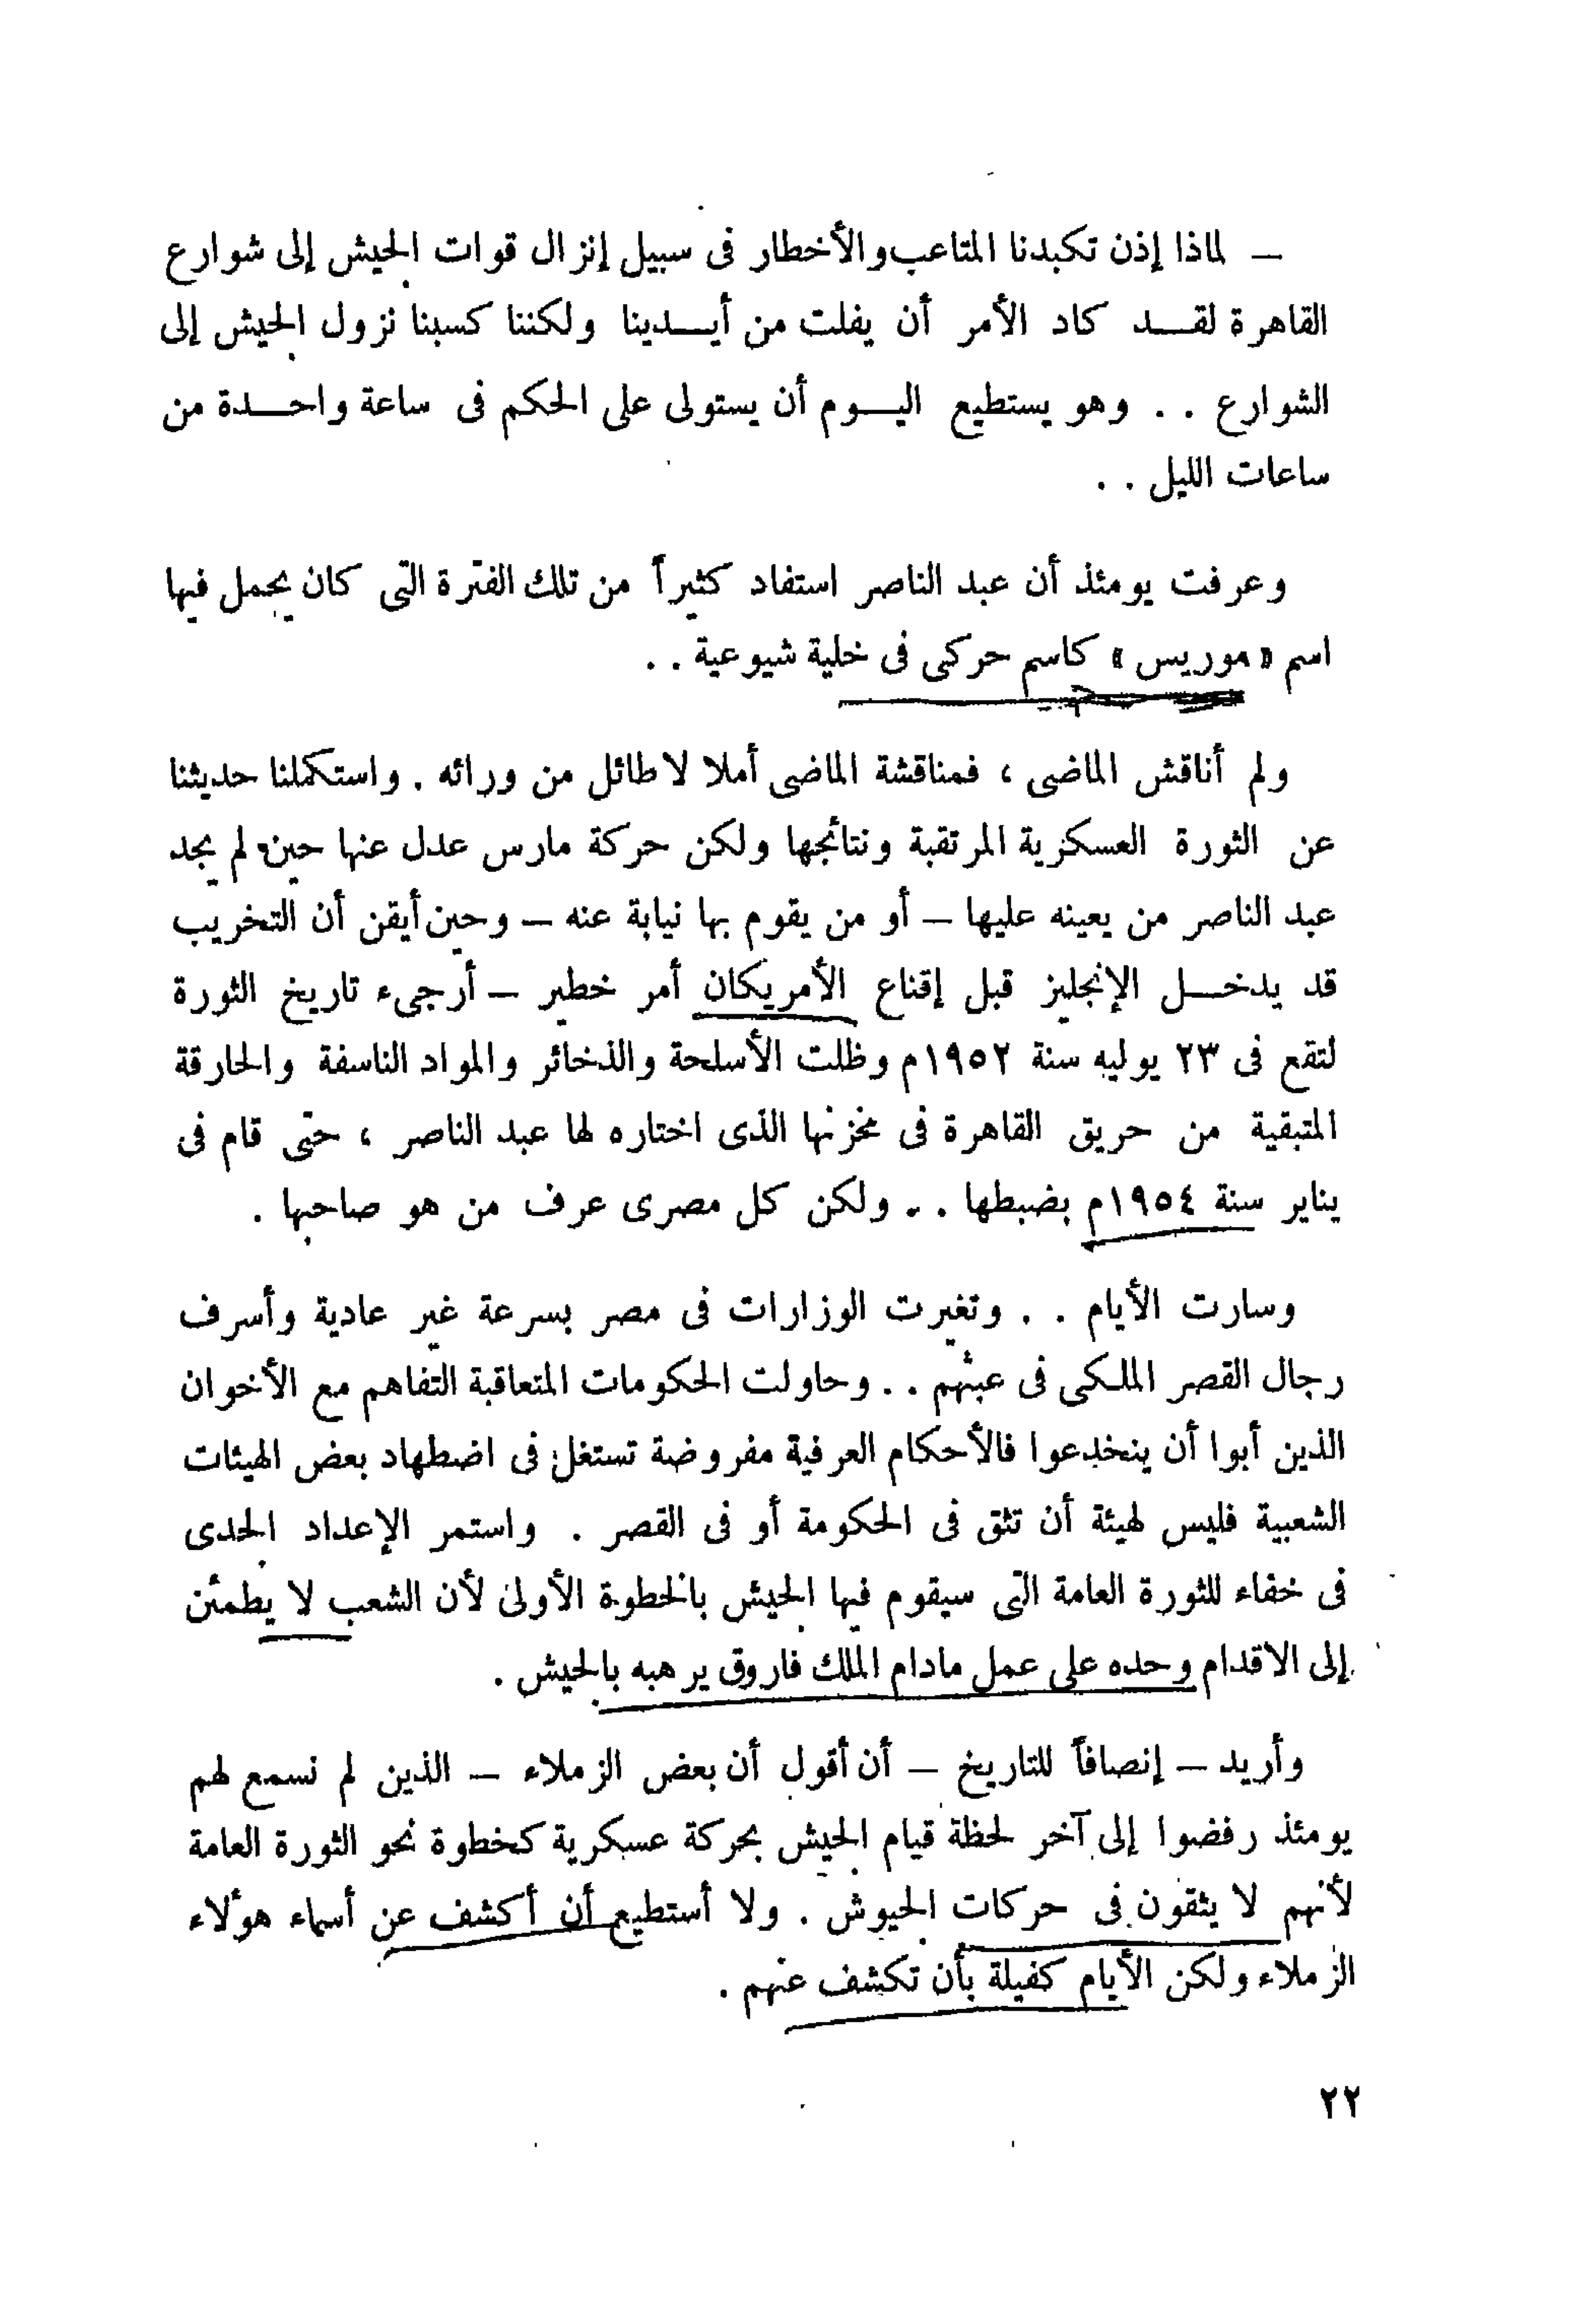 — لماذا إذن تكبدنا المتاعب والأخطار فى سبيل إنزال قوات الجيش إلى شوارع
القاهرة لقد كاد الأمر أن يفلت من أيدينا ولكننا كسبنا نزول الجيش إلى
الشوارع . . وهو يستطيع اليوم أن يستولى على الحكم فى ساعة واحدة من
ساعات الليل . .
وعرفت يومئذ أن عبد الناصر استفاد كثيراً من تلك الفترة التى كان يحمل فيها
اسم « موريس » كاسم حركى فى خلية شيوعية . .
ولم أناقش الماضى ، فمناقشة الماضى أملا لا طائل من ورائه . واستكملنا حديثنا
عن الثورة العسكرية المرتقبة ونتائجها ولكن حركة مارس عدل عنها حين لم يجد
عبد الناصر من يعينه عليها — أو من يقوم بها نيابة عنه — وحين أيقن أن التخريب
قد يدخل الإنجليز قبل إقناع الأمريكان أمر خطير — أرجىء تاريخ الثورة
لتقع فى ٢٣ يوليه سنة ١٩٥٢م وظلت الأسلحة والذخائر والمواد الناسفة والحارقة
المتبقية من حريق القاهرة فى مخزنها الذى اختاره لها عبد الناصر ، حتى قام فى
يناير سنة ١٩٥٤م بضبطها . . ولكن كل مصرى عرف من هو صاحبها .
وسارت الأيام . . وتغيرت الوزارات فى مصر بسرعة غير عادية وأسرف
رجال القصر الملكى فى عبثهم . . وحاولت الحكومات المتعاقبة التفاهم مع الأخوان
الذين أبوا أن ينخدعوا فالأحكام العرفية مفروضة تستغل فى اضطهاد بعض الهيئات
الشعبية فليس لهيئة أن تثق فى الحكومة أو فى القصر . واستمر الإعداد الجدى
فى خفاء للثورة العامة التى سيقوم فيها الجيش بالخطوة الأولى لأن الشعب لا يطمئن
إلى الاقدام وحده على عمل مادام الملك فاروق يرهبه بالجيش .
وأريد — إنصافاً للتاريخ — أن أقول أن بعض الزملاء — الذين لم نسمع لهم
يومئذ رفضوا إلى آخر لحظة قيام الجيش بحركة عسكرية كخطوة نحو الثورة العامة
لأنهم لا يثقون فى حركات الجيوش . ولا أستطيع أن أكشف عن أسماء هؤلاء
الزملاء ولكن الأيام كفيلة بأن تكشف عنهم .
٢٢